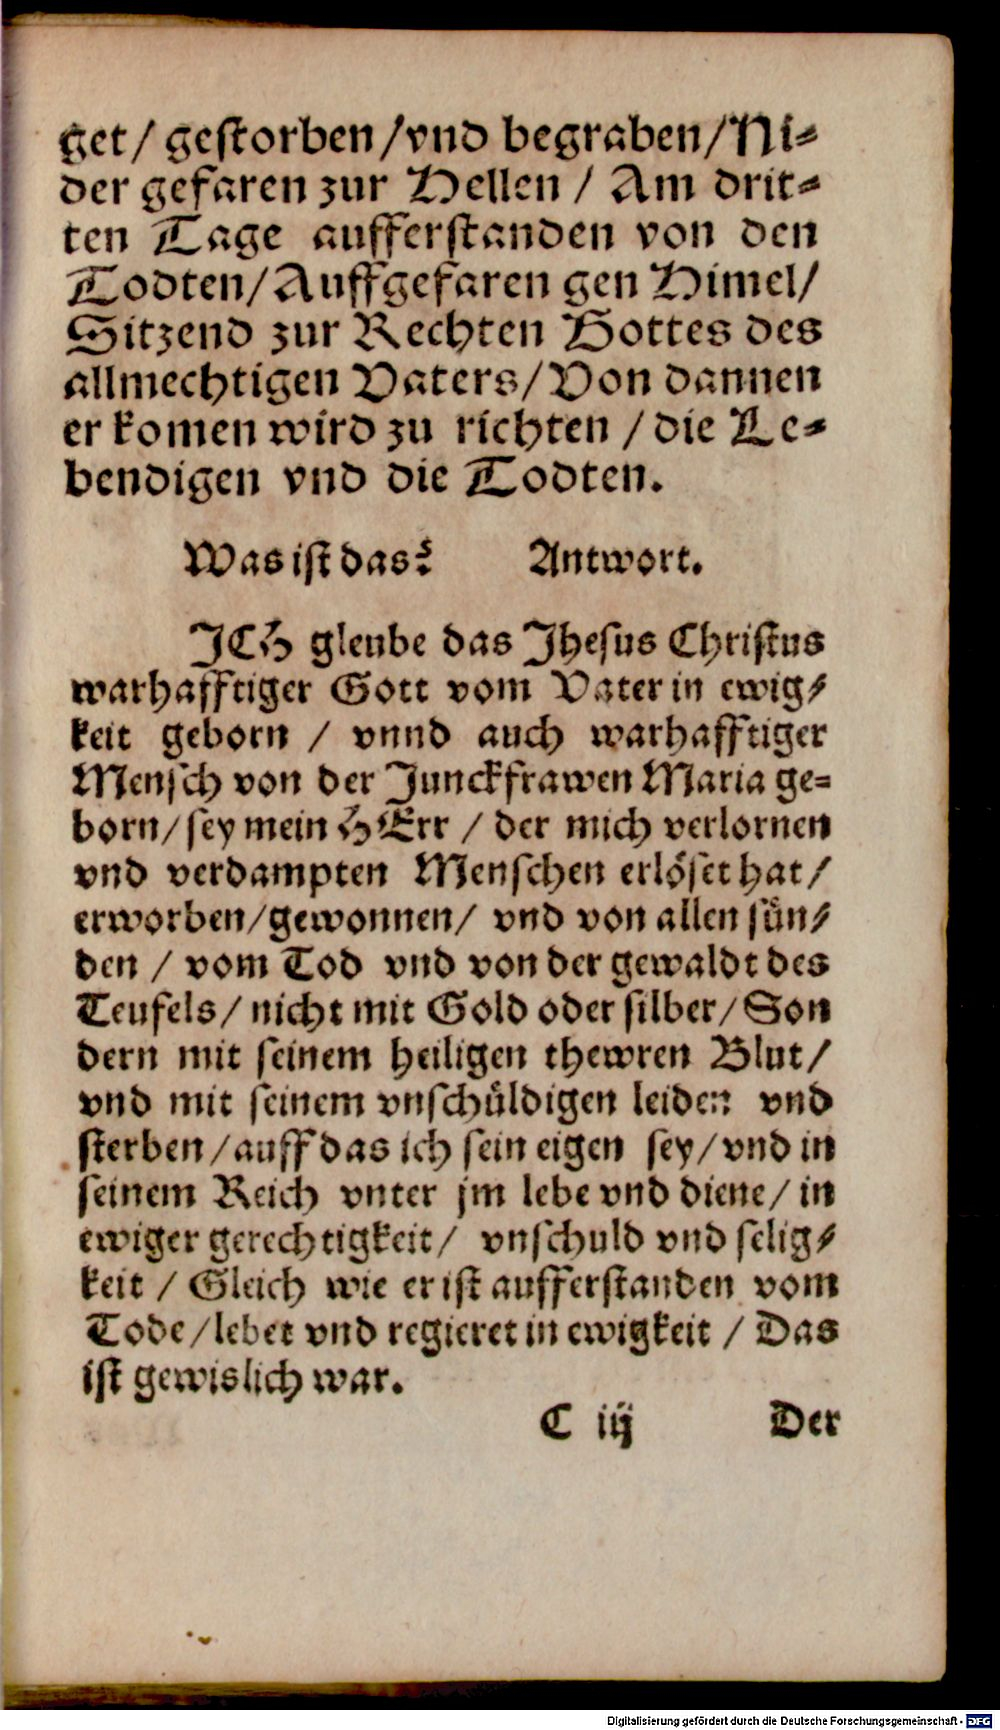 get/ gestorben/vnd begraben/Ni⸗
der gefaren zur Hellen / Am drit⸗
ten Tage aufferstanden von den
Todten/Auffgefaren gen Himel/
Sitzend zur Rechten Gottes des
allmechtigen Vaters/Von dannen
er komen wird zu richten / die Le⸗
bendigen vnd die Todten.
Was ist das? Antwort.
JCH gleube das Jhesus Christus
warhafftiger Gott vom Vater in ewig⸗
keit geborn / vnnd auch warhafftiger
Mensch von der Junckfrawen Maria ge⸗
born/sey mein HErr / der mich verlornen
vnd verdampten Menschen erlöset hat/
erworben/gewonnen/ vnd von allen sün⸗
den / vom Tod vnd von der gewaldt des
Teufels/ nicht mit Gold oder silber/Son
dern mit seinem heiligen thewren Blut/
vnd mit seinem vnschüldigen leiden vnd
sterben/auff das ich sein eigen sey/vnd in
seinem Reich vnter jm lebe vnd diene/ in
ewiger gerechtigkeit/ vnschuld vnd selig⸗
keit / Gleich wie er ist aufferstanden vom
Tode/lebet vnd regieret in ewigkeit / Das
ist gewislich war.
C iij Der
Digitalisierung gefördert durch die Deutsche Forschungsgemeinschaft - DFG